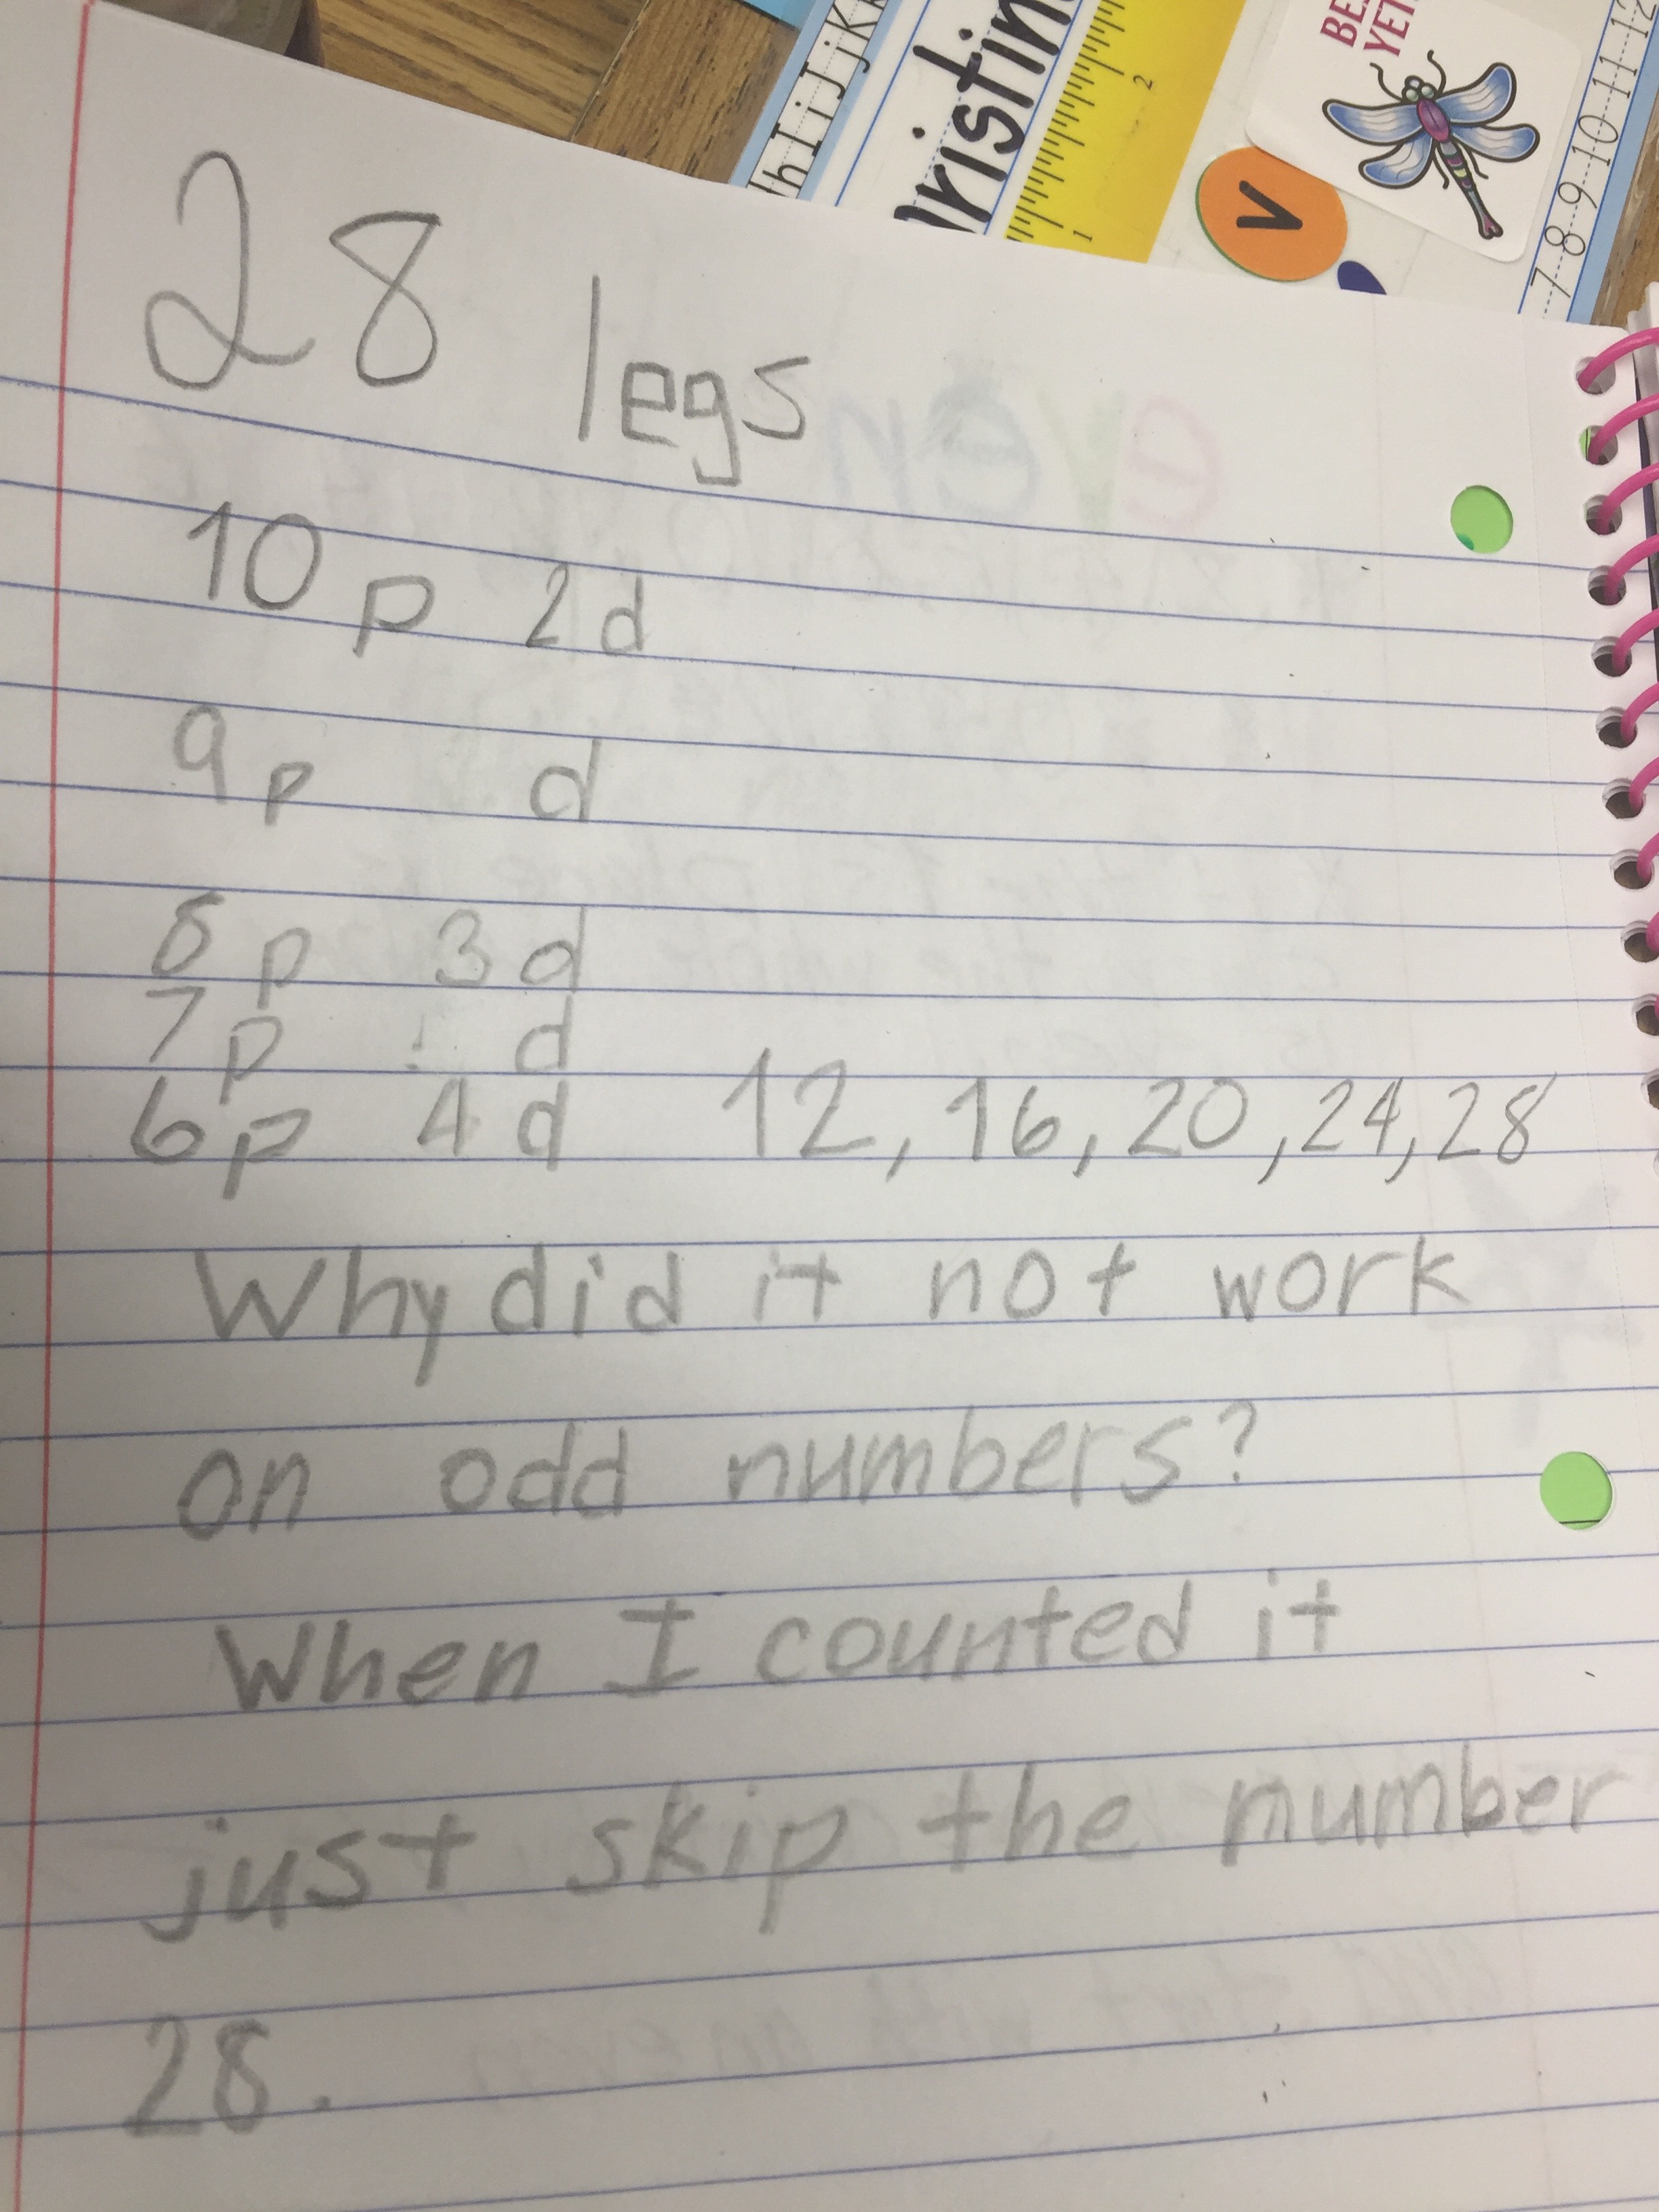 hIiJjK
ristin
1 2
V
BE
YET
7 8 9 10 11 12
even
28 legs
10 p 2d
9p d
8p 3d
7p d
6p 4d 12, 16, 20, 24, 28
Why did it not work
on odd numbers?
When I counted it
just skip the number
28.